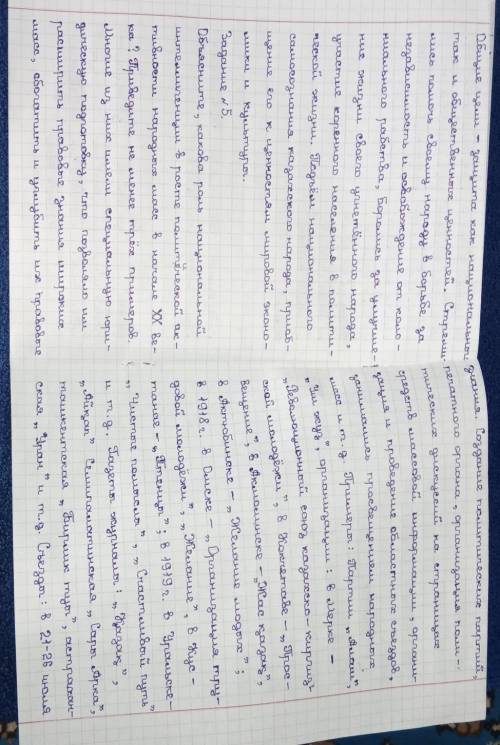 Общие цели – защита как национальных
так и общественных ценностей. Стреми-
лись помочь своему народу в борьбе за
независимость и освобождение от коло-
ниального рабства, боролись за улучше-
ние жизни своего угнетённого народа,
участие коренного населения в полити-
ческой жизни. Подъём национального
самосознания казахского народа, приоб-
щение его к ценностям мировой эконо-
мики и культуры.
Задание №5.
Объясните, какова роль национальной
интеллигенции в росте политической ак-
тивности народных масс в начале XX ве-
ка? Приведите не менее трёх примеров.
Многие из них имели специальную юри-
дическую подготовку, что позволяло им
расширить правовые знания широких
масс, обогатить и углубить их правовые
знания. Создание политических партий,
печатного органа, организация поли-
тических дискуссий на страницах
средств массовой информации, органи-
зация и проведение областного съездов,
занимались просвещением народных
масс и т.д. Примеры: Партии „Алаш",
„Уш жуз", организации: в Мерке –
„Революционный союз казахско-киргиз-
ской молодёжи", в Кокчетаве – „Прос-
вещение" в Акмолинске – „Жас қазақ",
в Актюбинске – „Желание молодых";
в 1918 г. в Омске – „Организация тру-
довой молодёжи", „Желание", в Кус-
танае – „Птенцы"; в 1919 г. в Уральске –
„Чистые помыслы", „Счастливый путь"
и т.д. Газеты журналы: „Қазақ",
„Айқап" Семипалатинская „Сары Арка",
ташкентская „Бирлик туы", астрахан-
ская „Уран" и т.д. Съезды: в 21-26 июля